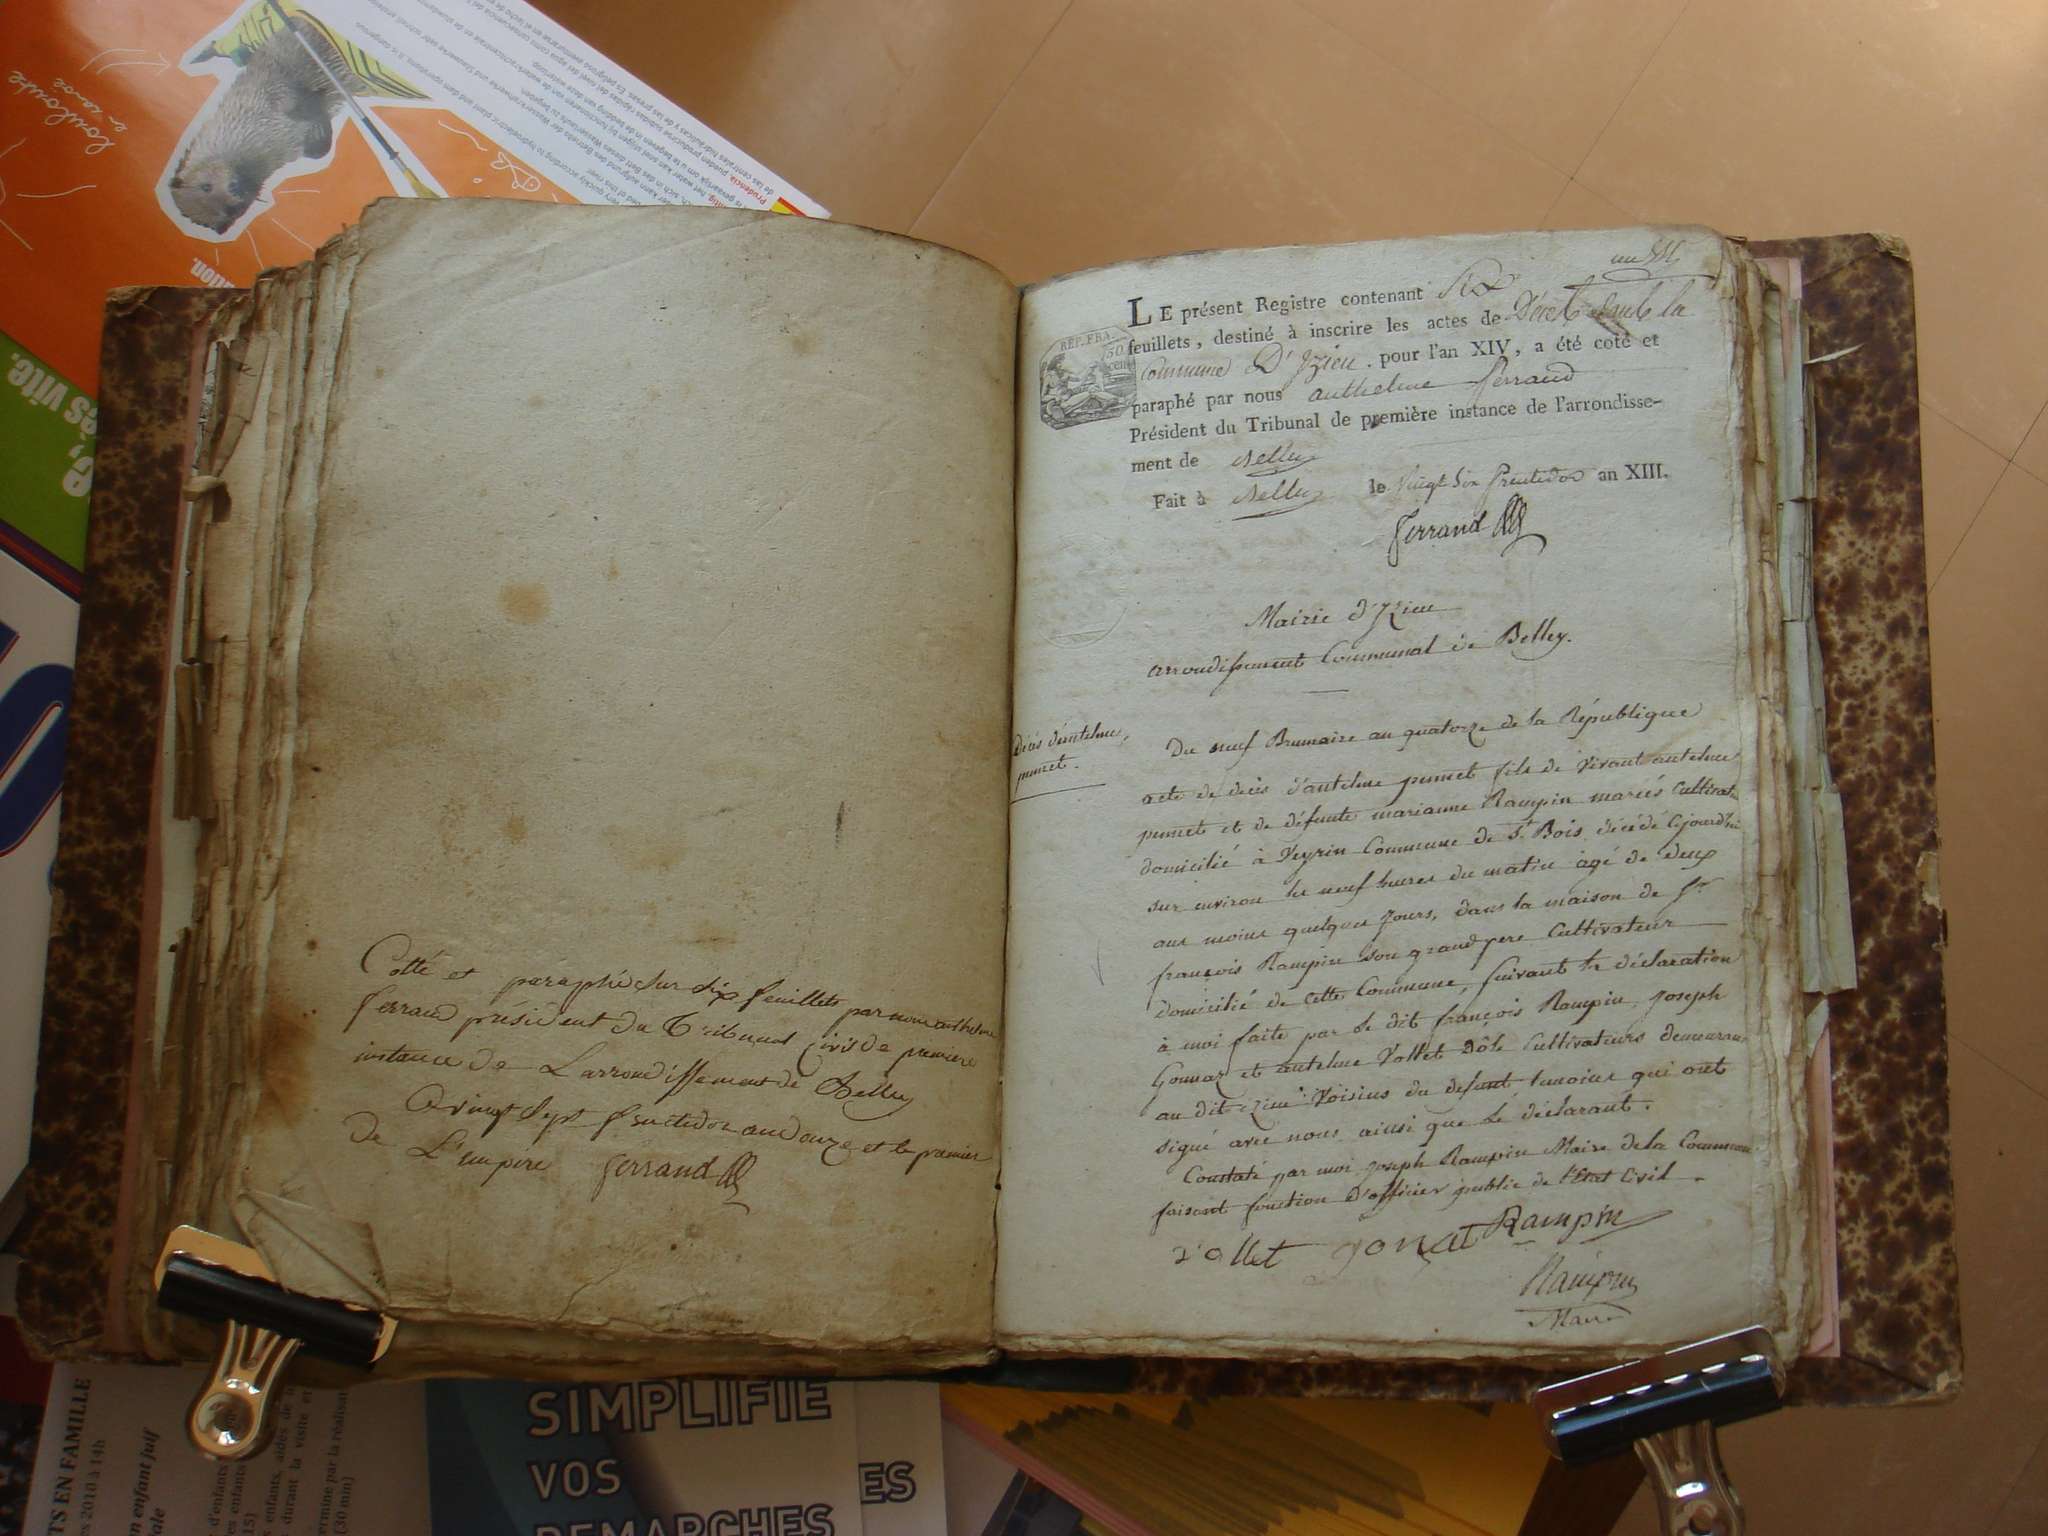 Cotté et paraphé sur dix feuillets par nous anthelme
ferrand président du Tribunal Civil de premiere
instance de L'arrondissement de Belley
a vingt Sept fructidor an douze et le premier
de L'empire ferrand
LE présent Registre contenant six
feuillets, destiné à inscrire les actes de Décès dans la
Commune D'Izieu pour l'an XIV, a été coté et
paraphé par nous anthelme ferrand
Président du Tribunal de première instance de l'arrondisse-
ment de Belley
Fait à Belley le vingt Six fructidor an XIII.
ferrand
REP. FRA.
50
cen
Mairie d'Izieu
arrondissement Communal de Belley.
Décès d'antelme
pumet.
Du neuf Brumaire an quatorze de la République
acte de décès d'antelme pumet fils de vivant antelme
pumet et de défunte marianne Rampin mariés Cultivat
domicilié à Veyrin Commune de St Bois, décédé Cejourd'hui
sur environ les neuf heures du matin agé de deux
ans moins quelques jours, dans la maison de Sr
françois Rampin son grand pere Cultivateur
domicilié de cette Commune, suivant la déclaration
à moi faite par le dit françois Rampin, Joseph
Gonnaz et antelme Vollet Dôle Cultivateurs demeurans
au dit izieu Voisins du defunt temoins qui ont
signé avec nous ainsi que le déclarant.
Constaté par moi Joseph Rampin Maire de la Commune
faisant fonction D'officier public de l'Etat Civil.
vollet gonat Rampin
Rampin
Maire
SIMPLIFIE
VOS
DEMARCHES
ES
TS EN FAMILLE
es 2010 à 14h
n enfant juif
ale
(30 min)
loulouste
en canoë
es vite.